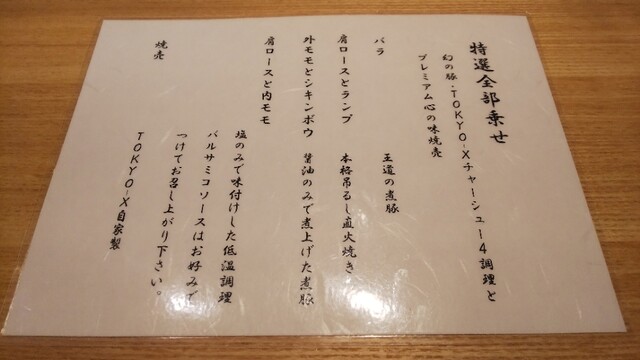 特選全部乗せ
幻の豚・TOKYO-Xチャーシュー4調理と
プレミアム心の味焼売
バラ　王道の煮豚
肩ロースとランプ　本格吊るし直火焼き
外モモとシキンボウ　醤油のみで煮上げた煮豚
肩ロースと内モモ　塩のみで味付けした低温調理
バルサミコソースはお好みで
つけてお召し上がり下さい。
焼売　TOKYO-X自家製